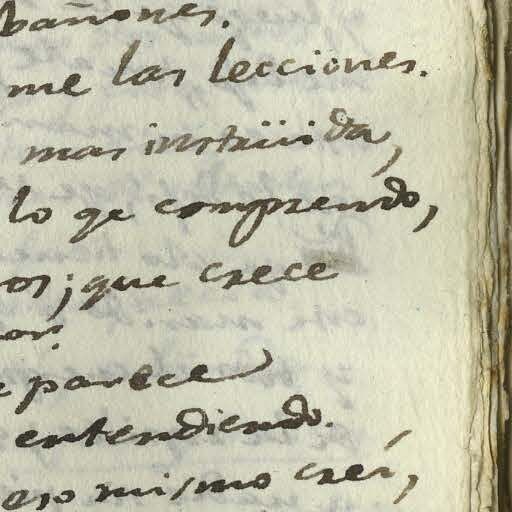 bañones.
me las lecciones.
mas instrüida,
lo qe comprendo,
os; que crece
or.
parece
entendiendo.
eso mismo creí,